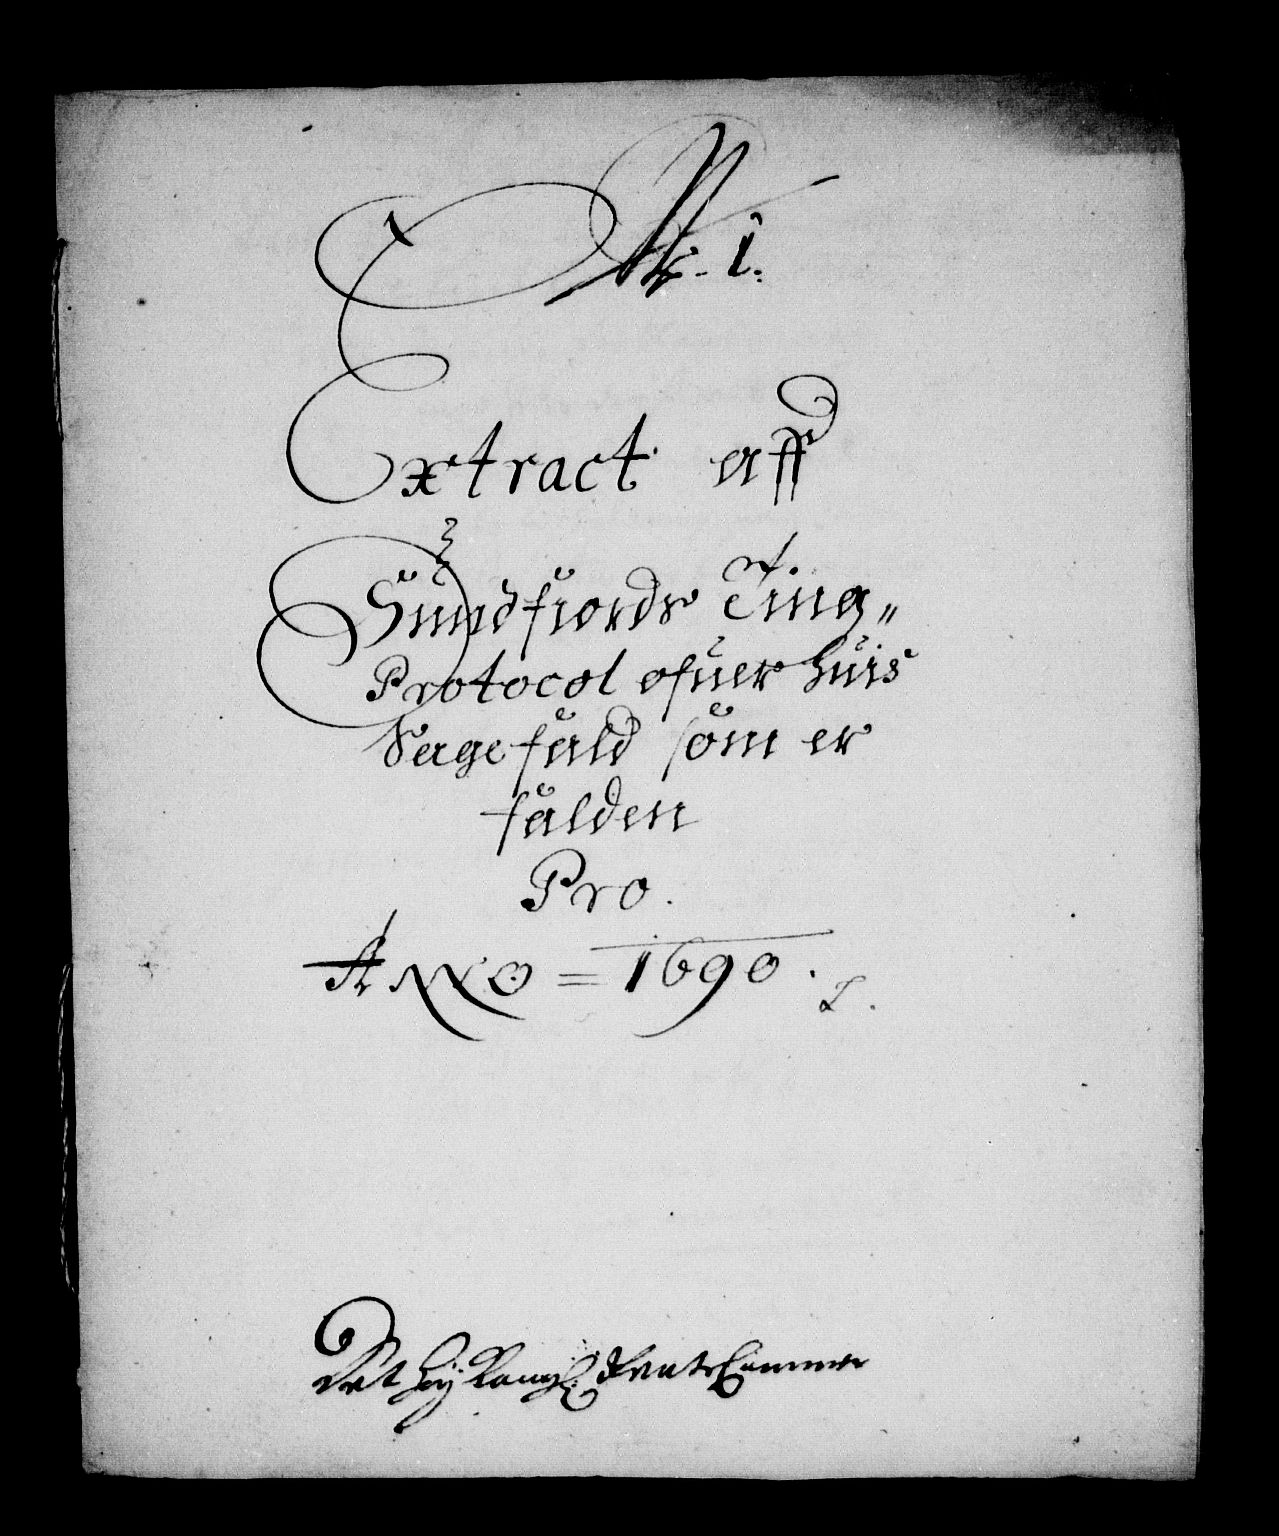 No. 1.
Extract aff
Sundfiords Ting„
Protocol ofuer huis
Sagefald som er
falden
Pro.
ANNO = 1690. L.
Det höÿ Kongl. RenteCammer